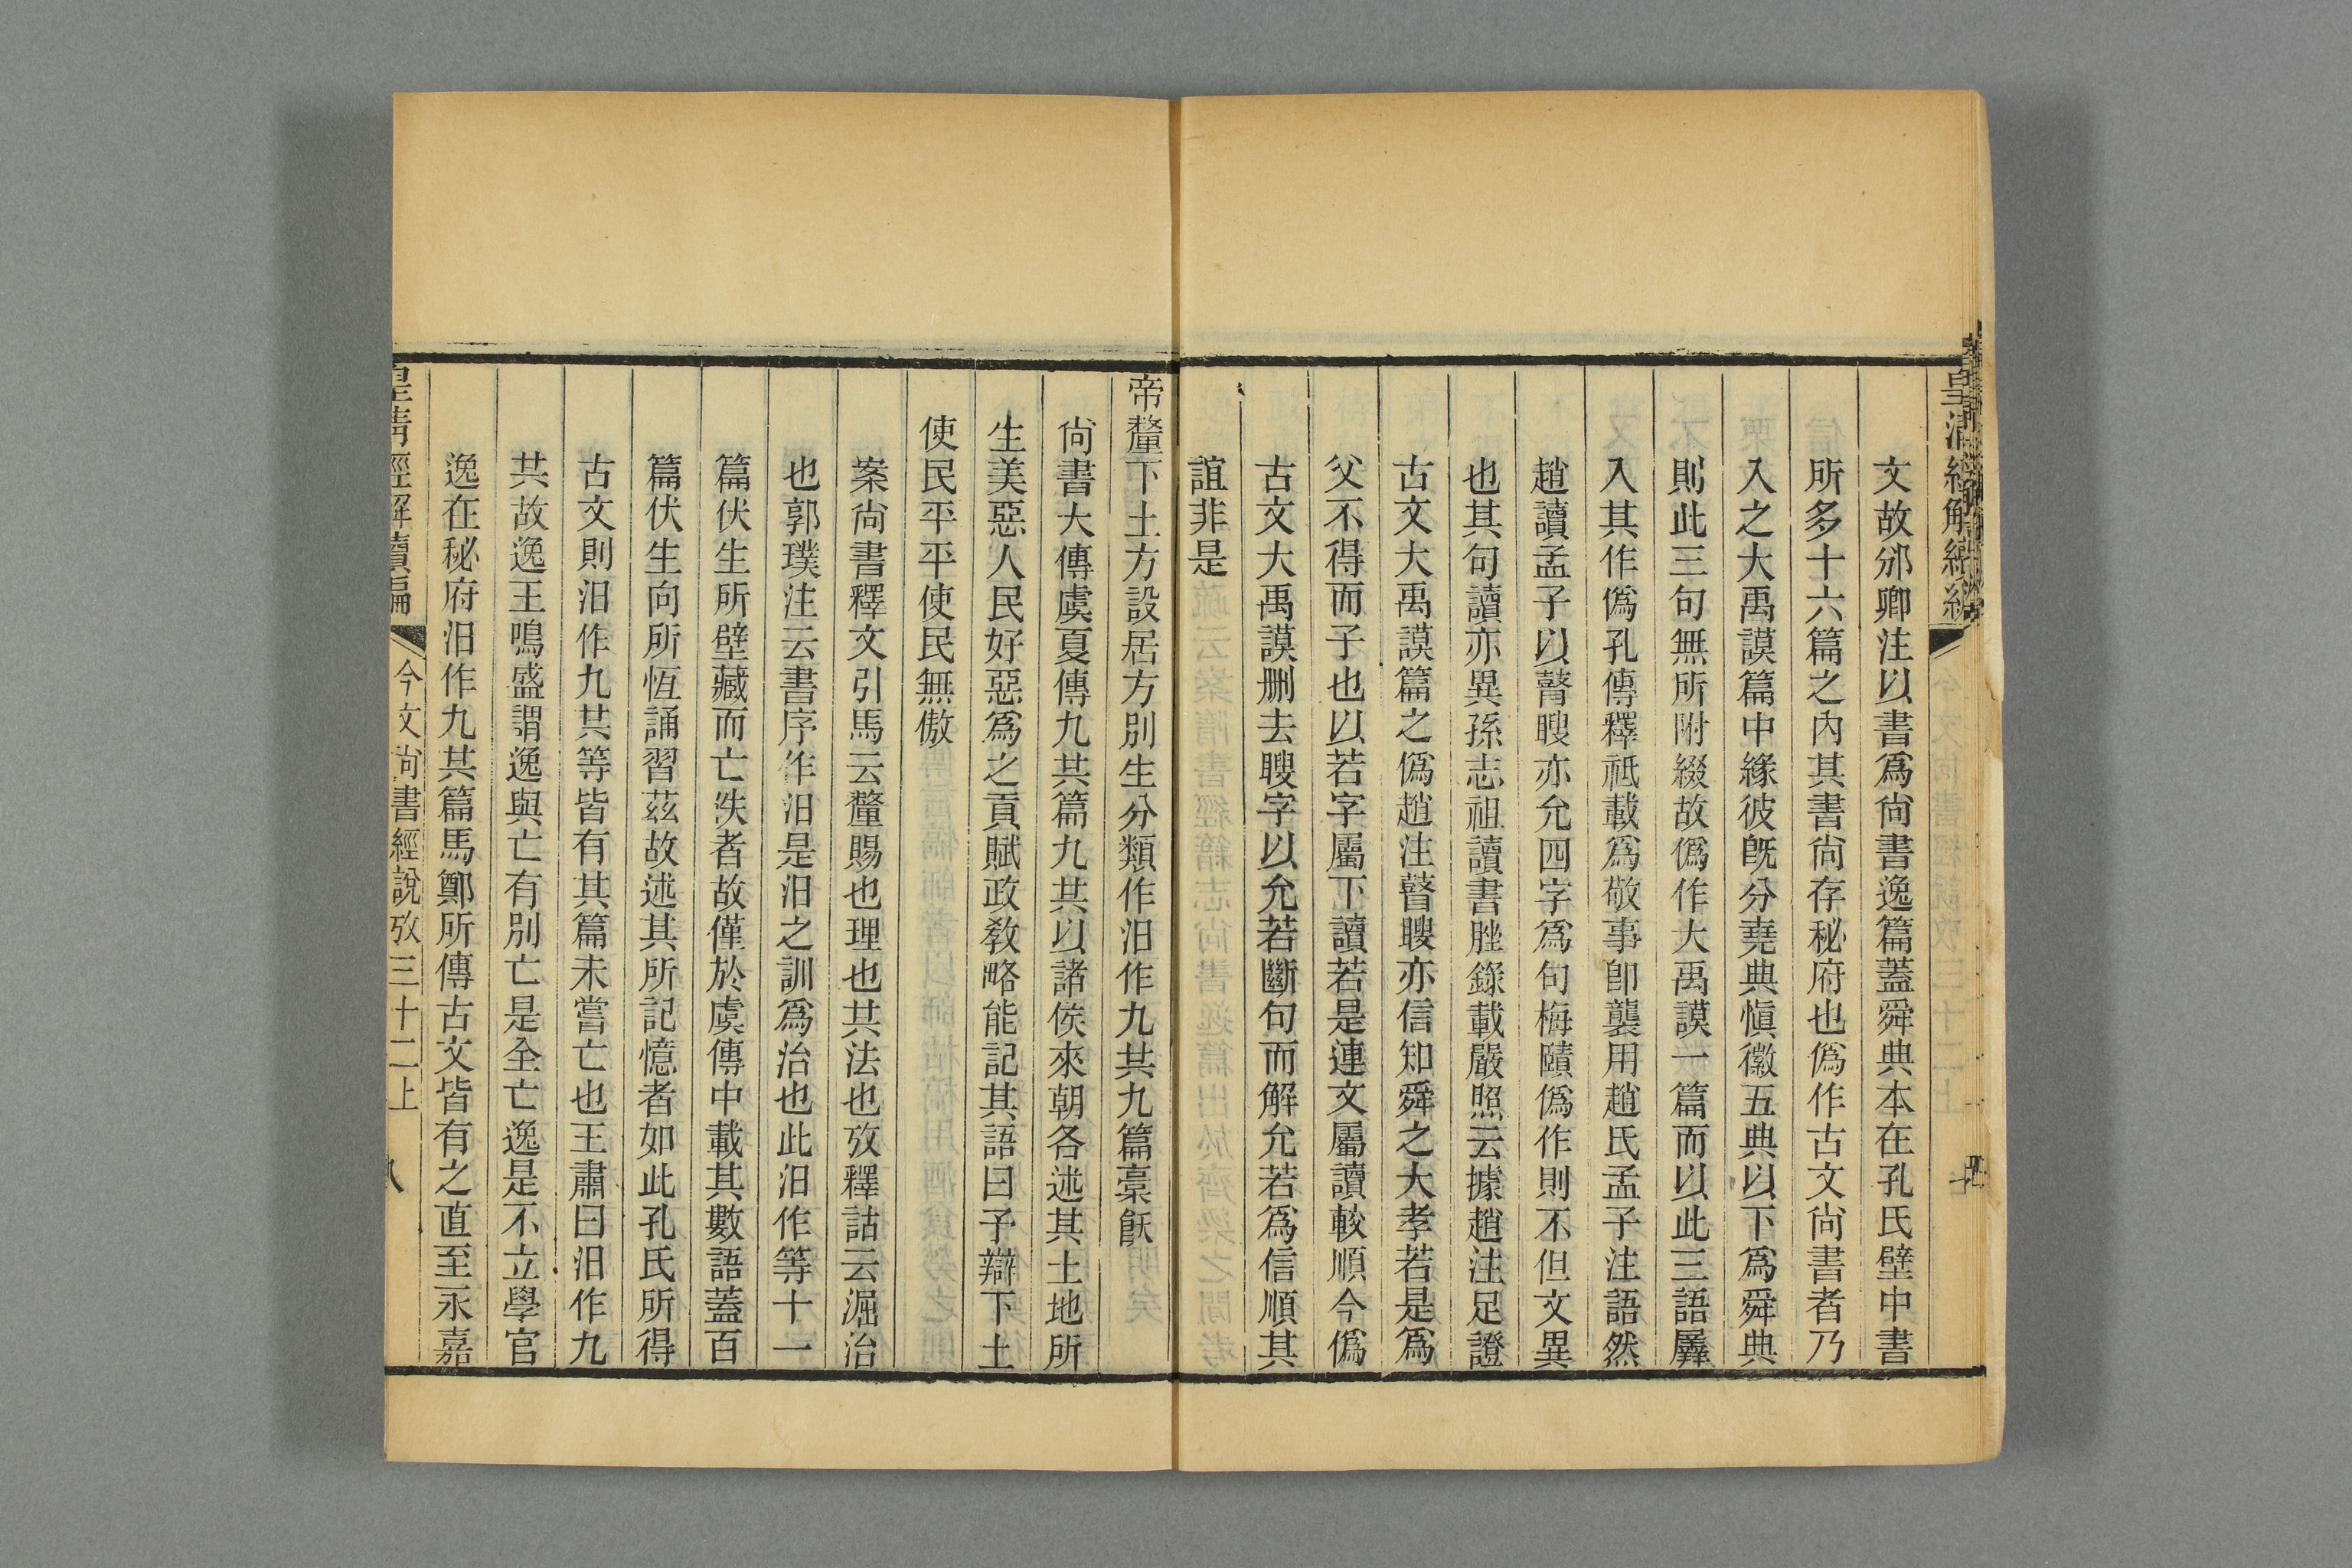 皇清經解續編
文故邠卿注以書爲尙書逸篇蓋舜典本在孔氏壁中書
所多十六篇之內其書尙存秘府也僞作古文尙書者乃
入之大禹謨篇中緣彼旣分堯典愼徽五典以下爲舜典
則此三句無所附綴故僞作大禹謨一篇而以此三語羼
入其作僞孔傳釋祗載爲敬事卽襲用趙氏孟子注語然
趙讀孟子以瞽瞍亦允四字爲句梅賾僞作則不但文異
也其句讀亦異孫志祖讀書脞錄載嚴照云據趙注足證
古文大禹謨篇之僞趙注瞽瞍亦信知舜之大孝若是爲
父不得而子也以若字屬下讀若是連文屬讀較順今僞
古文大禹謨刪去瞍字以允若斷句而解允若爲信順其
誼非是
帝釐下土方設居方別生分類作汨作九共九篇槀飫
尙書大傳虞夏傳九共篇九共以諸侯來朝各述其土地所
生美惡人民好惡爲之貢賦政敎略能記其語曰予辯下土
使民平平使民無傲
案尙書釋文引馬云釐賜也理也共法也攷釋詁云淈治
也郭璞注云書序作汨是汨之訓爲治也此汨作等十一
篇伏生所壁藏而亡泆者故僅於虞傳中載其數語蓋百
篇伏生向所恆誦習茲故述其所記憶者如此孔氏所得
古文則汨作九共等皆有其篇未嘗亡也王肅曰汨作九
共故逸王鳴盛謂逸與亡有別亡是全亡逸是不立學官
逸在秘府汨作九共篇馬鄭所傳古文皆有之直至永嘉
皇淸經解續編 今文尙書經說攷三十二上 八